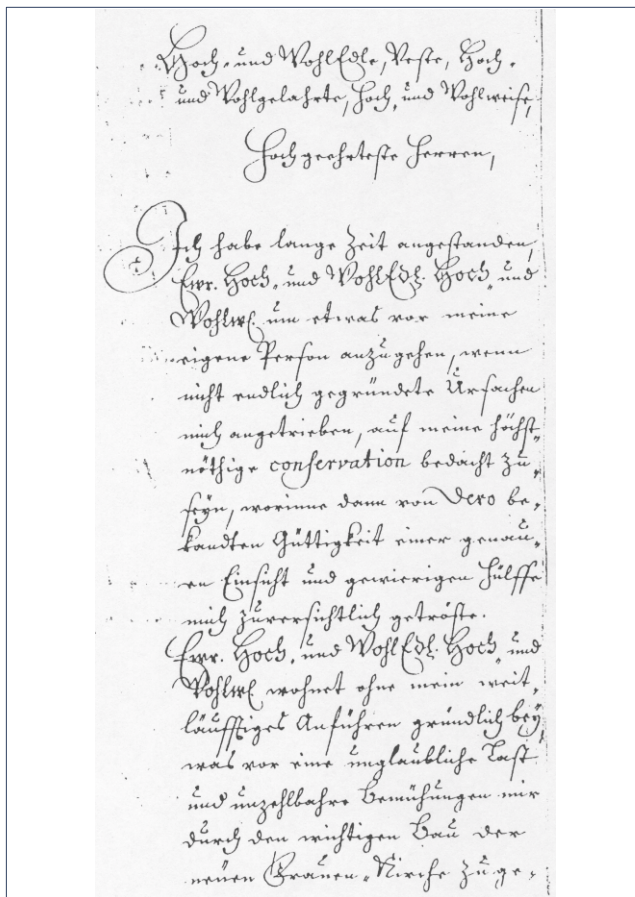 Hoch- und WohlEdle, Veste, Hoch-
und Wohlgelahrte, Hoch- und Wohlweise,
Hochgeehrteste Herren,
Ich habe lange Zeit angestanden,
Ewr. Hoch- und WohlEdl. Hoch- und
Wohlw. um etwas vor meine
eigene Person anzugehen, wenn
nicht endlich gegründete Ursachen
mich angetrieben, auf meine höchst-
nöthige conservation bedacht zu
seyn, worinne dann von Dero be-
kandten Güttigkeit einer genau-
en Einsicht und gewierigen Hülffe
mich zuversichtlich getröste.
Ewr. Hoch- und WohlEdl. Hoch- und
Wohlw. wohnet ohne mein weit-
läufftiges Anführen gründlich bey,
was vor eine unglaubliche Last
und unzehlbahre Bemühungen mir
durch den wichtigen Bau der
neuen Frauen-Kirche zu ge-